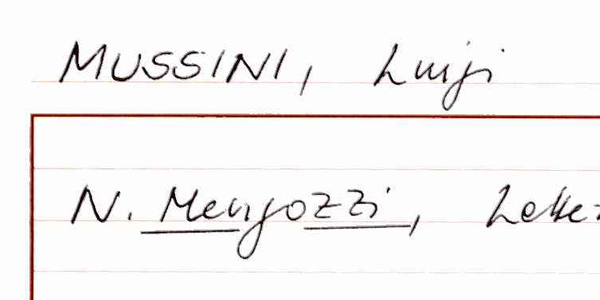 MUSSINI, Luigi
N. Mengozzi,